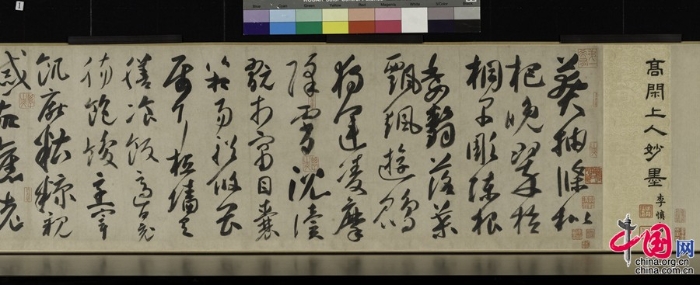 高閑上人妙墨
莽抽條枇
杷晚翠梧
桐早彫陳根
委翳落葉
飄颻遊鵾
獨運凌摩
絳霄耽讀
翫市寓目囊
箱易輶攸畏
屬耳垣牆具
膳飡飯適口充
腸飽飫烹宰
飢厭糟糠親
戚故舊老
中国网
china.org.cn
china.com.cn